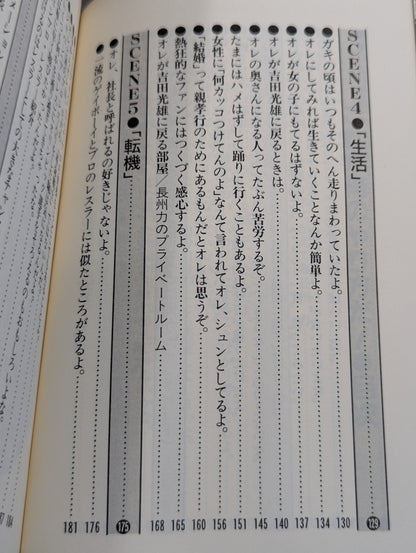 SCENE4●「生活」 129
●ガキの頃はいつもそのへん走りまわっていたよ。 130
●オレにしてみれば生きていくことなんか簡単よ。 134
●オレが女の子にもてるはずないよ。 137
●オレが吉田光雄に戻るときは。 140
●オレの奥さんになる人ってたぶん苦労するぞ。 145
●たまにはハメはずして踊りに行くこともあるよ。 151
●女性に「何カッコつけてんのよ」なんて言われてオレ、シュンとしてるよ。 156
●「結婚」って親孝行のためにあるもんだとオレは思うぞ。 160
●熱狂的なファンにはつくづく感心するよ。 165
●オレが吉田光雄に戻る部屋／長州力のプライベートルーム 168
SCENE5●「転機」 175
●オレ、社長と呼ばれるの好きじゃないよ。 176
●一流のゲイボーイとプロのレスラーには似たところがあるよ。 181